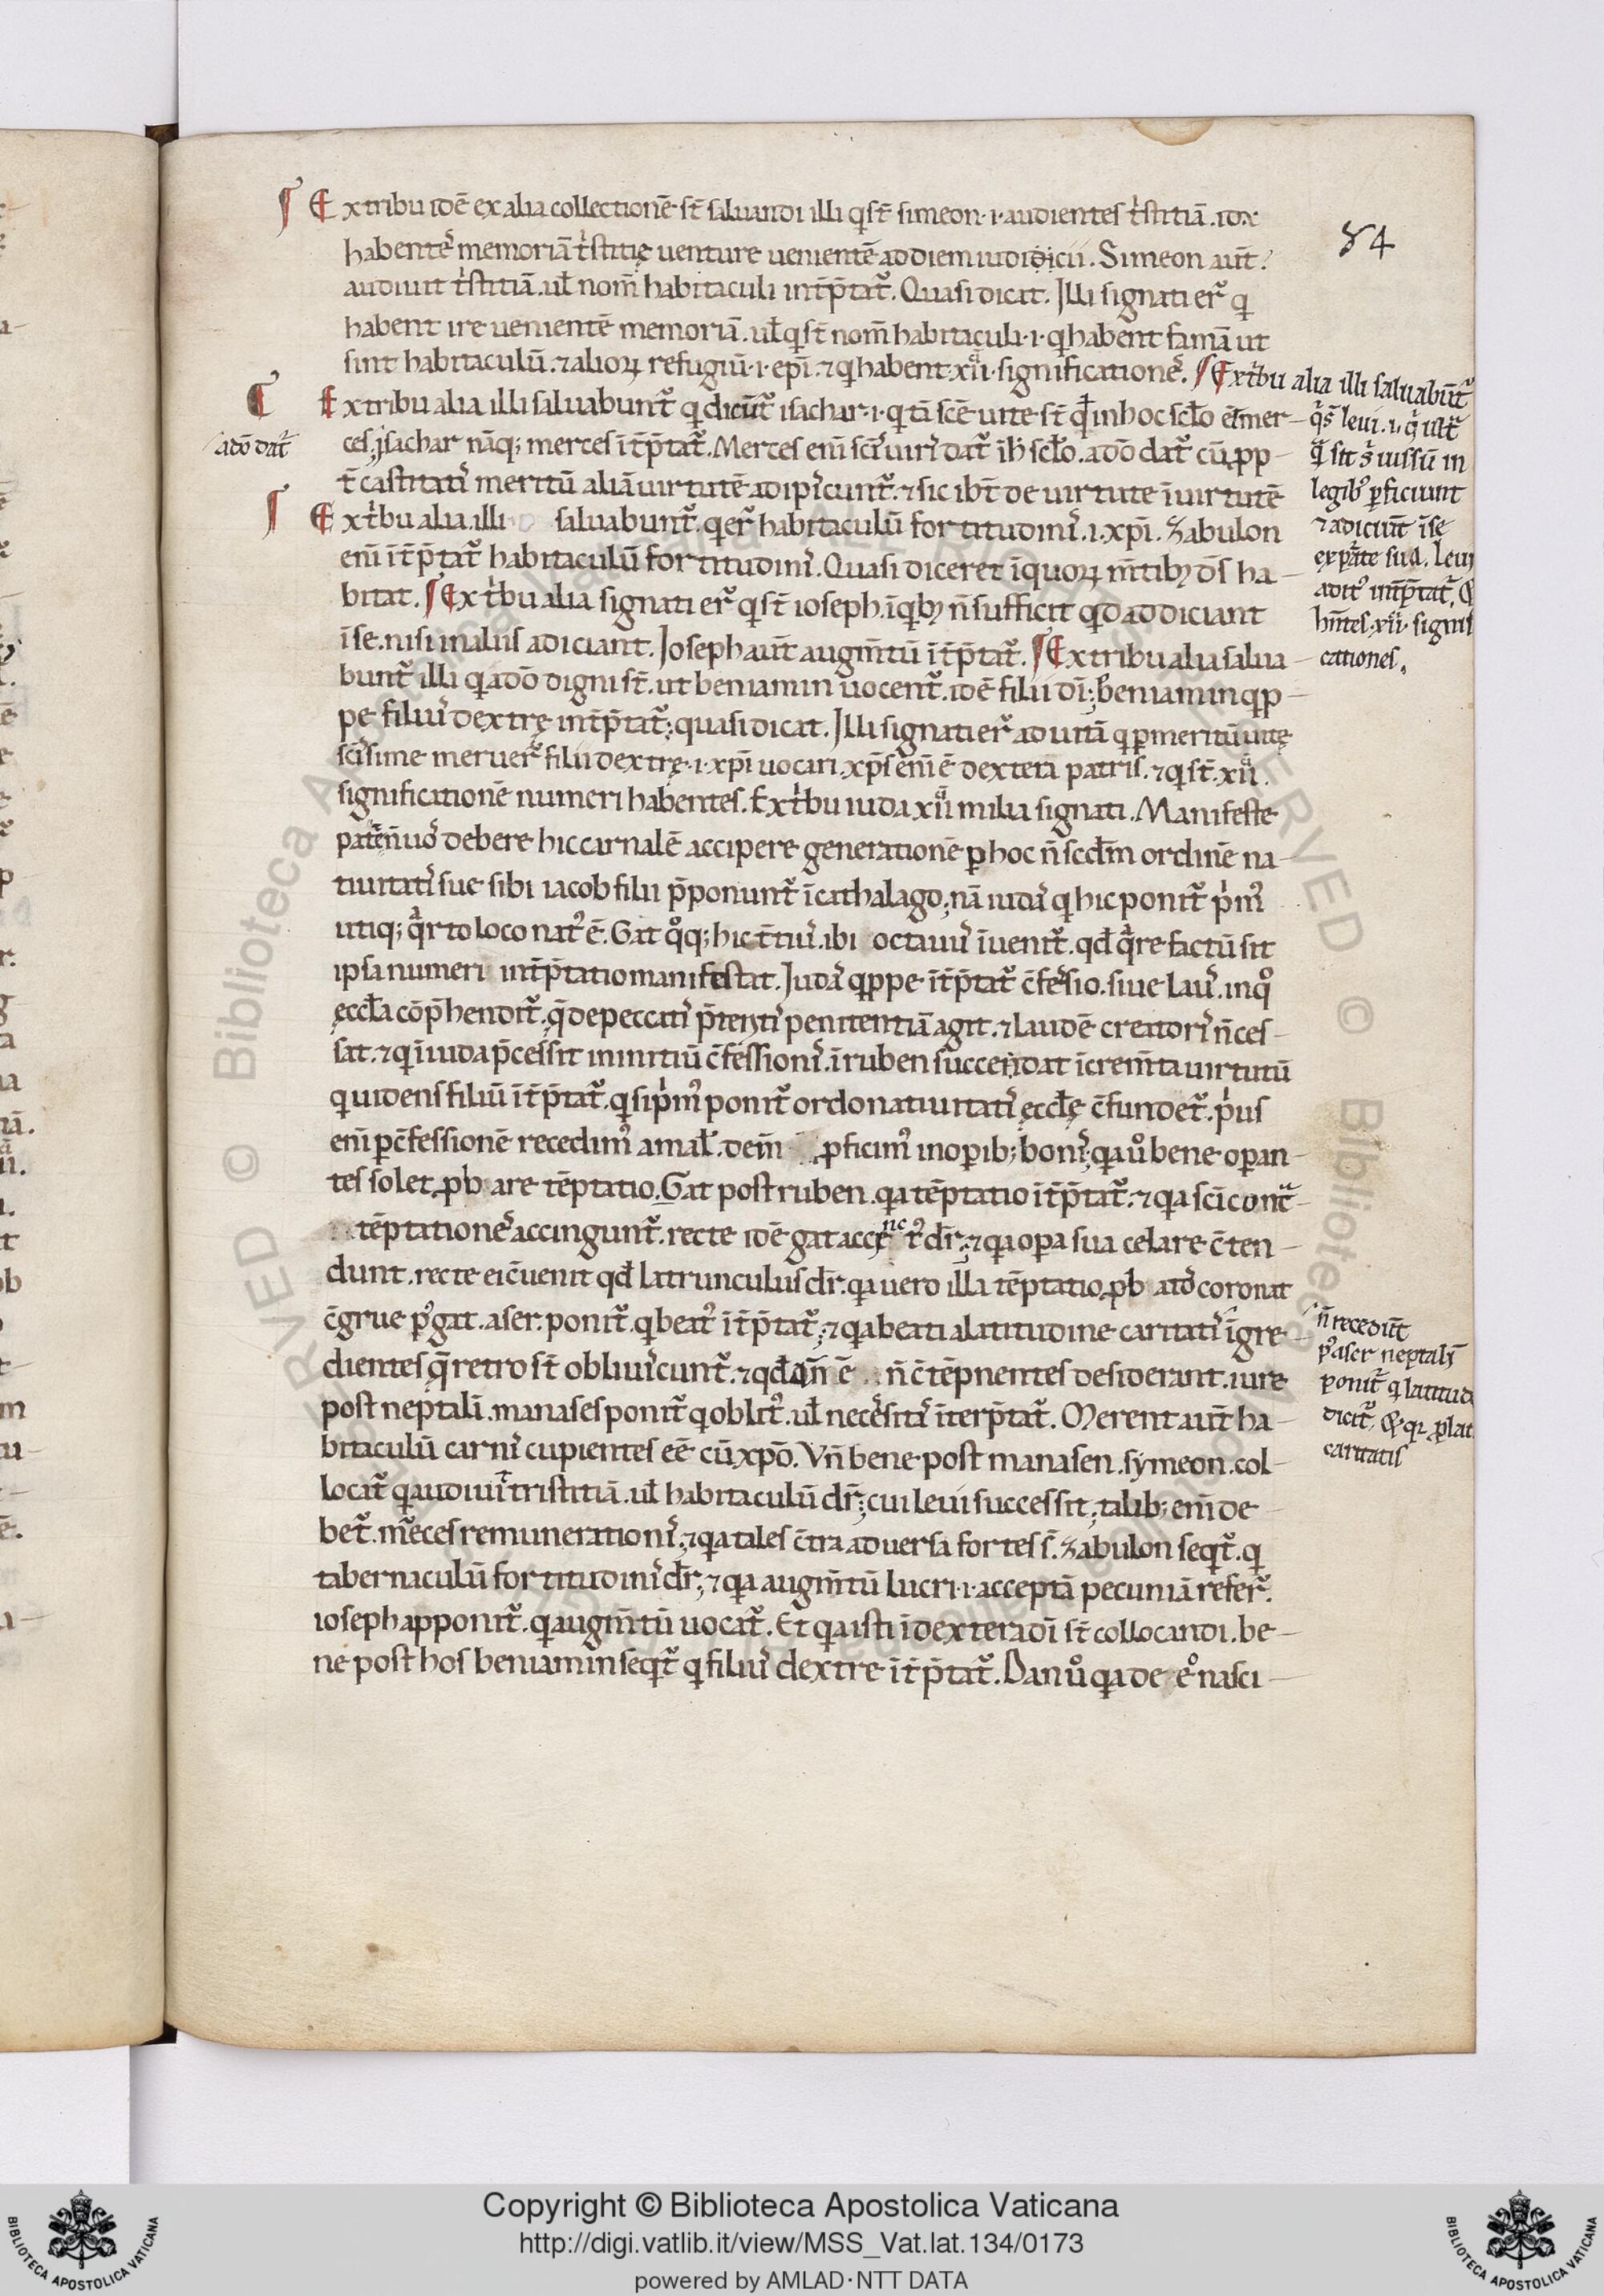 ¶ Extribu idē ex alia collectionē st̄ saluandi illi qi st̄ simeon ·i· audientes tͥstitiā .
habentes memoriā tͥstitię uenture uenientē ad diem iudicii . Simeon aut̄
audiuit tͥstitiā . ul̄ nom̄ habitaculi int̄p̄tat᷑ . Quasi dicat . Illi signati er᷑ qi
habent ire uenientē memoriā . ul̄ qi st̄ nom̄ habitaculi ·i· qi habent famā ut
sint habitaculū . ⁊ alioꝝ refugiū ·i· ep̄i . ⁊ qi habent xii significationē . ¶ Extͥbu alia illi saluabūt᷑
Extribu alia illi saluabunt᷑ qi dicūt᷑ isachar ·i· qi tā scē uite st̄ qd̄ in hoc scl̄o ē mer-
ces ; ysachar nāq; merces īt̄p̄tat᷑ . Merces eni sci uiri dat᷑ ih scl̄o . adō dat᷑ cū ꝓp-
t̄ castitatis meritū aliā uirtutē adipiscunt᷑ . ⁊ sic ibt̄ de uirtute ī uirtutē
¶ Extͥbu alia . illi saluabunt᷑ . qi er᷑ habitaculū fortitudinis . i . xp̄i . Zabulon
eni īt̄p̄tat᷑ habitaculū fortitudinis . Quasi diceret ī quoꝝ m̄tibꝫ ds̄ ha-
bitat . ¶ Extͥbu alia signati er᷑ qi st̄ ioseph . ī qibꝫ n̄ sufficit qd addiciant
ī se . nisi in aliis adiciant . Ioseph aut̄ augm̄tū īt̄p̄tat᷑ . ¶ Extribu alia salua-
bunt᷑ illi qi adō digni st̄ . ut beniamin uocent᷑ . idē filii dī ; beniamin qipp-
pe filius dextrę int̄p̄tat᷑ ; quasi dicat . Illi signati er᷑ ad uitā qi ꝑ meritū uitę
scissime meruer᷑ filii dextrę ·i· xp̄i uocari . xp̄s enī ē dextera patris . ⁊ qi st̄ . xii .
significationē numeri habentes . Extͥbu iuda xii milia signati . Manifeste
patet n̄ nos debere hic carnalē accipere generationē ꝑ hoc n̄ sccd̄m ordinē na-
tiuitatis sue sibi iacob filii p̄ponunt᷑ ī cathalago ; nā iudas qi hic ponit᷑ pͥmus
utiq; qͣrto loco natꝰ ē . Gat qoq; hic t̄tius . ibi octauus īuenit᷑ . qd̄ qͣre factū sit
ipsa numeri int̄p̄tatio manifestat . Iudas qippe īt̄p̄tat᷑ c̄fessio . siue laus . in qo
ęccl̄a cōp̄hendit᷑ . q̄ de peccatis p̄teritis penitentiā agit . ⁊ laudē creatoris n̄ ces-
sat . ⁊ qi ī iuda p̄cessit in initiū c̄fessionis . ī ruben succendat īcrem̄ta uirtutū
qi uidens filiū īt̄p̄tat᷑ . qi si pͥmꝰ ponit᷑ ordo natiuitatis ęccl̄ę c̄fundet᷑ . pͥus
eni ꝑ c̄fessionē recedimꝰ a mal̄ . dein ꝓficimꝰ in opib; bonis ; qia uͦ bene opan-
tes solet ꝓbare tēptatio . Gat post ruben . qia tēptatio īt̄p̄tat᷑ . ⁊ qia sci contͣ
tēptationes accingunt᷑ . recte idē gat accinctꝰ dr̄ ; ⁊ qia opa sua celare c̄ten-
dunt . recte ei c̄uenit qd̄ latrunculus dr̄ . qia uero illa tēptatio ꝓbatos coronat
c̄grue pꝰ gat . aser . ponit᷑ . qi beatꝰ īt̄p̄tat᷑ ; ⁊ qia beati a latitudine caritatis īgre-
dientes q̄ retro st̄ obliuiscunt᷑ . ⁊ qd̄ ē n̄ c̄tēpnentes desiderant . iure
post neptali . manases ponit᷑ qi oblitꝰ . ul̄ necessitas īterp̄tat᷑ . Merent aut̄ ha-
bitaculū carnis cupientes eē cū xp̄o . Vn̄ bene post manasen . symeon . col-
locat᷑ qi audiuit tristitiā . ul̄ habitaculū dr̄ ; cui leui successit ; talib; eni de-
bet᷑ . merces remunerationis ; ⁊ qia tales c̄tra aduersa fortes s̄ . Zabulon seqit᷑ . qi
tabernaculū fortitudinis dr̄ ; ⁊ qia augm̄tū lucri ·i· acceptā pecuniā refer᷑ .
ioseph apponit᷑ . qi augm̄tū uocat᷑ . Et qia isti ī dextera dī st̄ collocandi . be-
ne post hos beniamin seqit᷑ qi filius dextre īt̄p̄tat᷑ . Dan uͦ qia de eo nasci-
adō dat᷑
84
qi s̄ leui
legibꝰ ꝑficiunt
⁊ adiciūt īse
ex parte sua . leui
cationes .
n̄ recedūt
pꝰ aser neptalī
ponit᷑ qi latitudo
dicit᷑
caritatis
Copyright © Biblioteca Apostolica Vaticana
http://digi.vatlib.it/view/MSS_Vat.lat.134/0173
powered by AMLAD·NTT DATA
BIBLIOTECA APOSTOLICA VATICANA
BIBLIOTECA APOSTOLICA VATICANA